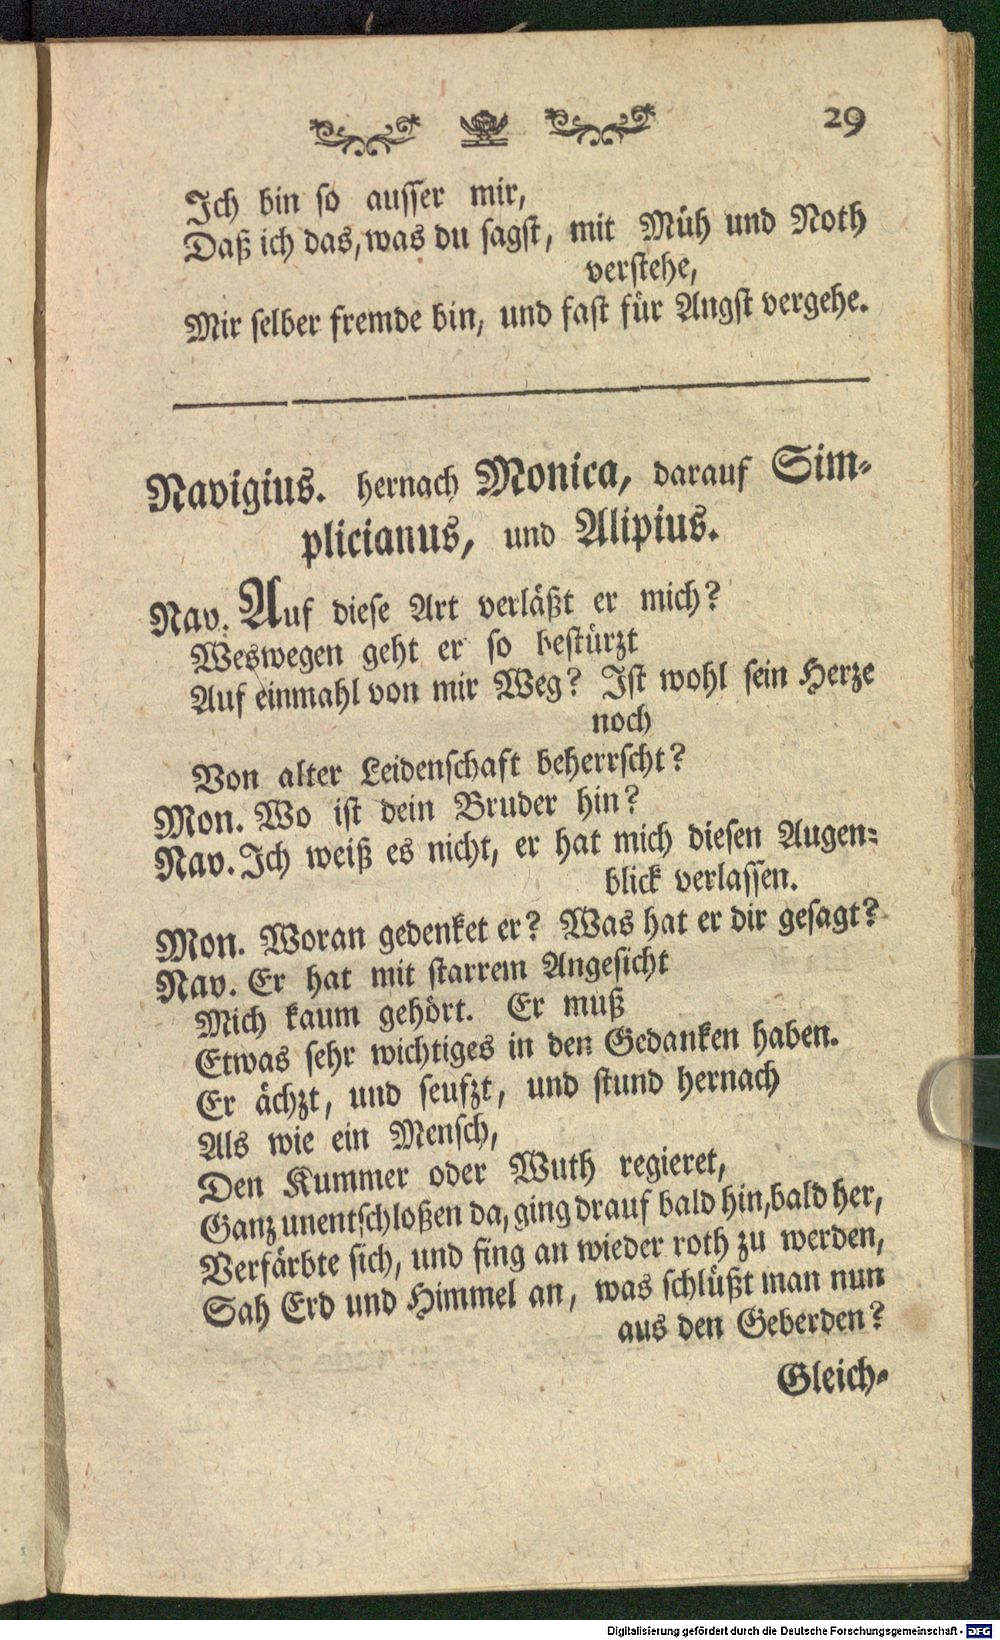 29
Ich bin so ausser mir,
Daß ich das, was du sagst, mit Müh und Noth
verstehe,
Mir selber fremde bin, und fast für Angst vergehe.
Navigius. hernach Monica, darauf Sim-
plicianus, und Alipius.
Nav. Auf diese Art verläßt er mich?
Weswegen geht er so bestürzt
Auf einmahl von mir Weg? Ist wohl sein Herze
noch
Von alter Leidenschaft beherrscht?
Mon. Wo ist dein Bruder hin?
Nav. Ich weiß es nicht, er hat mich diesen Augen-
blick verlassen.
Mon. Woran gedenket er? Was hat er dir gesagt?
Nav. Er hat mit starrem Angesicht
Mich kaum gehört. Er muß
Etwas sehr wichtiges in den Gedanken haben.
Er ächzt, und seufzt, und stund hernach
Als wie ein Mensch,
Den Kummer oder Wuth regieret,
Ganz unentschloßen da, ging drauf bald hin, bald her,
Verfärbte sich, und fing an wieder roth zu werden,
Sah Erd und Himmel an, was schlüßt man nun
aus den Geberden?
Gleich-
Digitalisierung gefördert durch die Deutsche Forschungsgemeinschaft - DFG